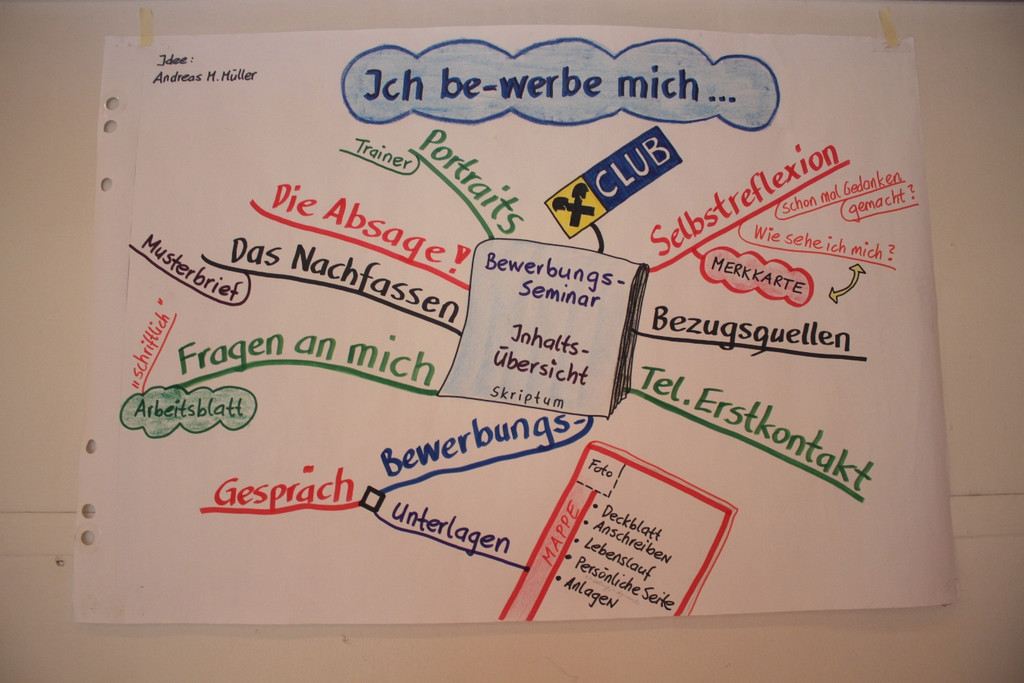 Idee:
Andreas M. Müller
Ich be-werbe mich...
Trainer
Portraits
CLUB
Selbstreflexion
schon mal Gedanken
gemacht?
Wie sehe ich mich?
MERKKARTE
Die Absage!
Das Nachfassen
Musterbrief
Bewerbungs-
Seminar
Inhalts-
Übersicht
Skriptum
Bezugsquellen
"schriftlich"
Fragen an mich
Arbeitsblatt
Tel. Erstkontakt
Bewerbungs-
Gespräch
Unterlagen
MAPPE
Foto
• Deckblatt
• Anschreiben
• Lebenslauf
• Persönliche Seite
• Anlagen